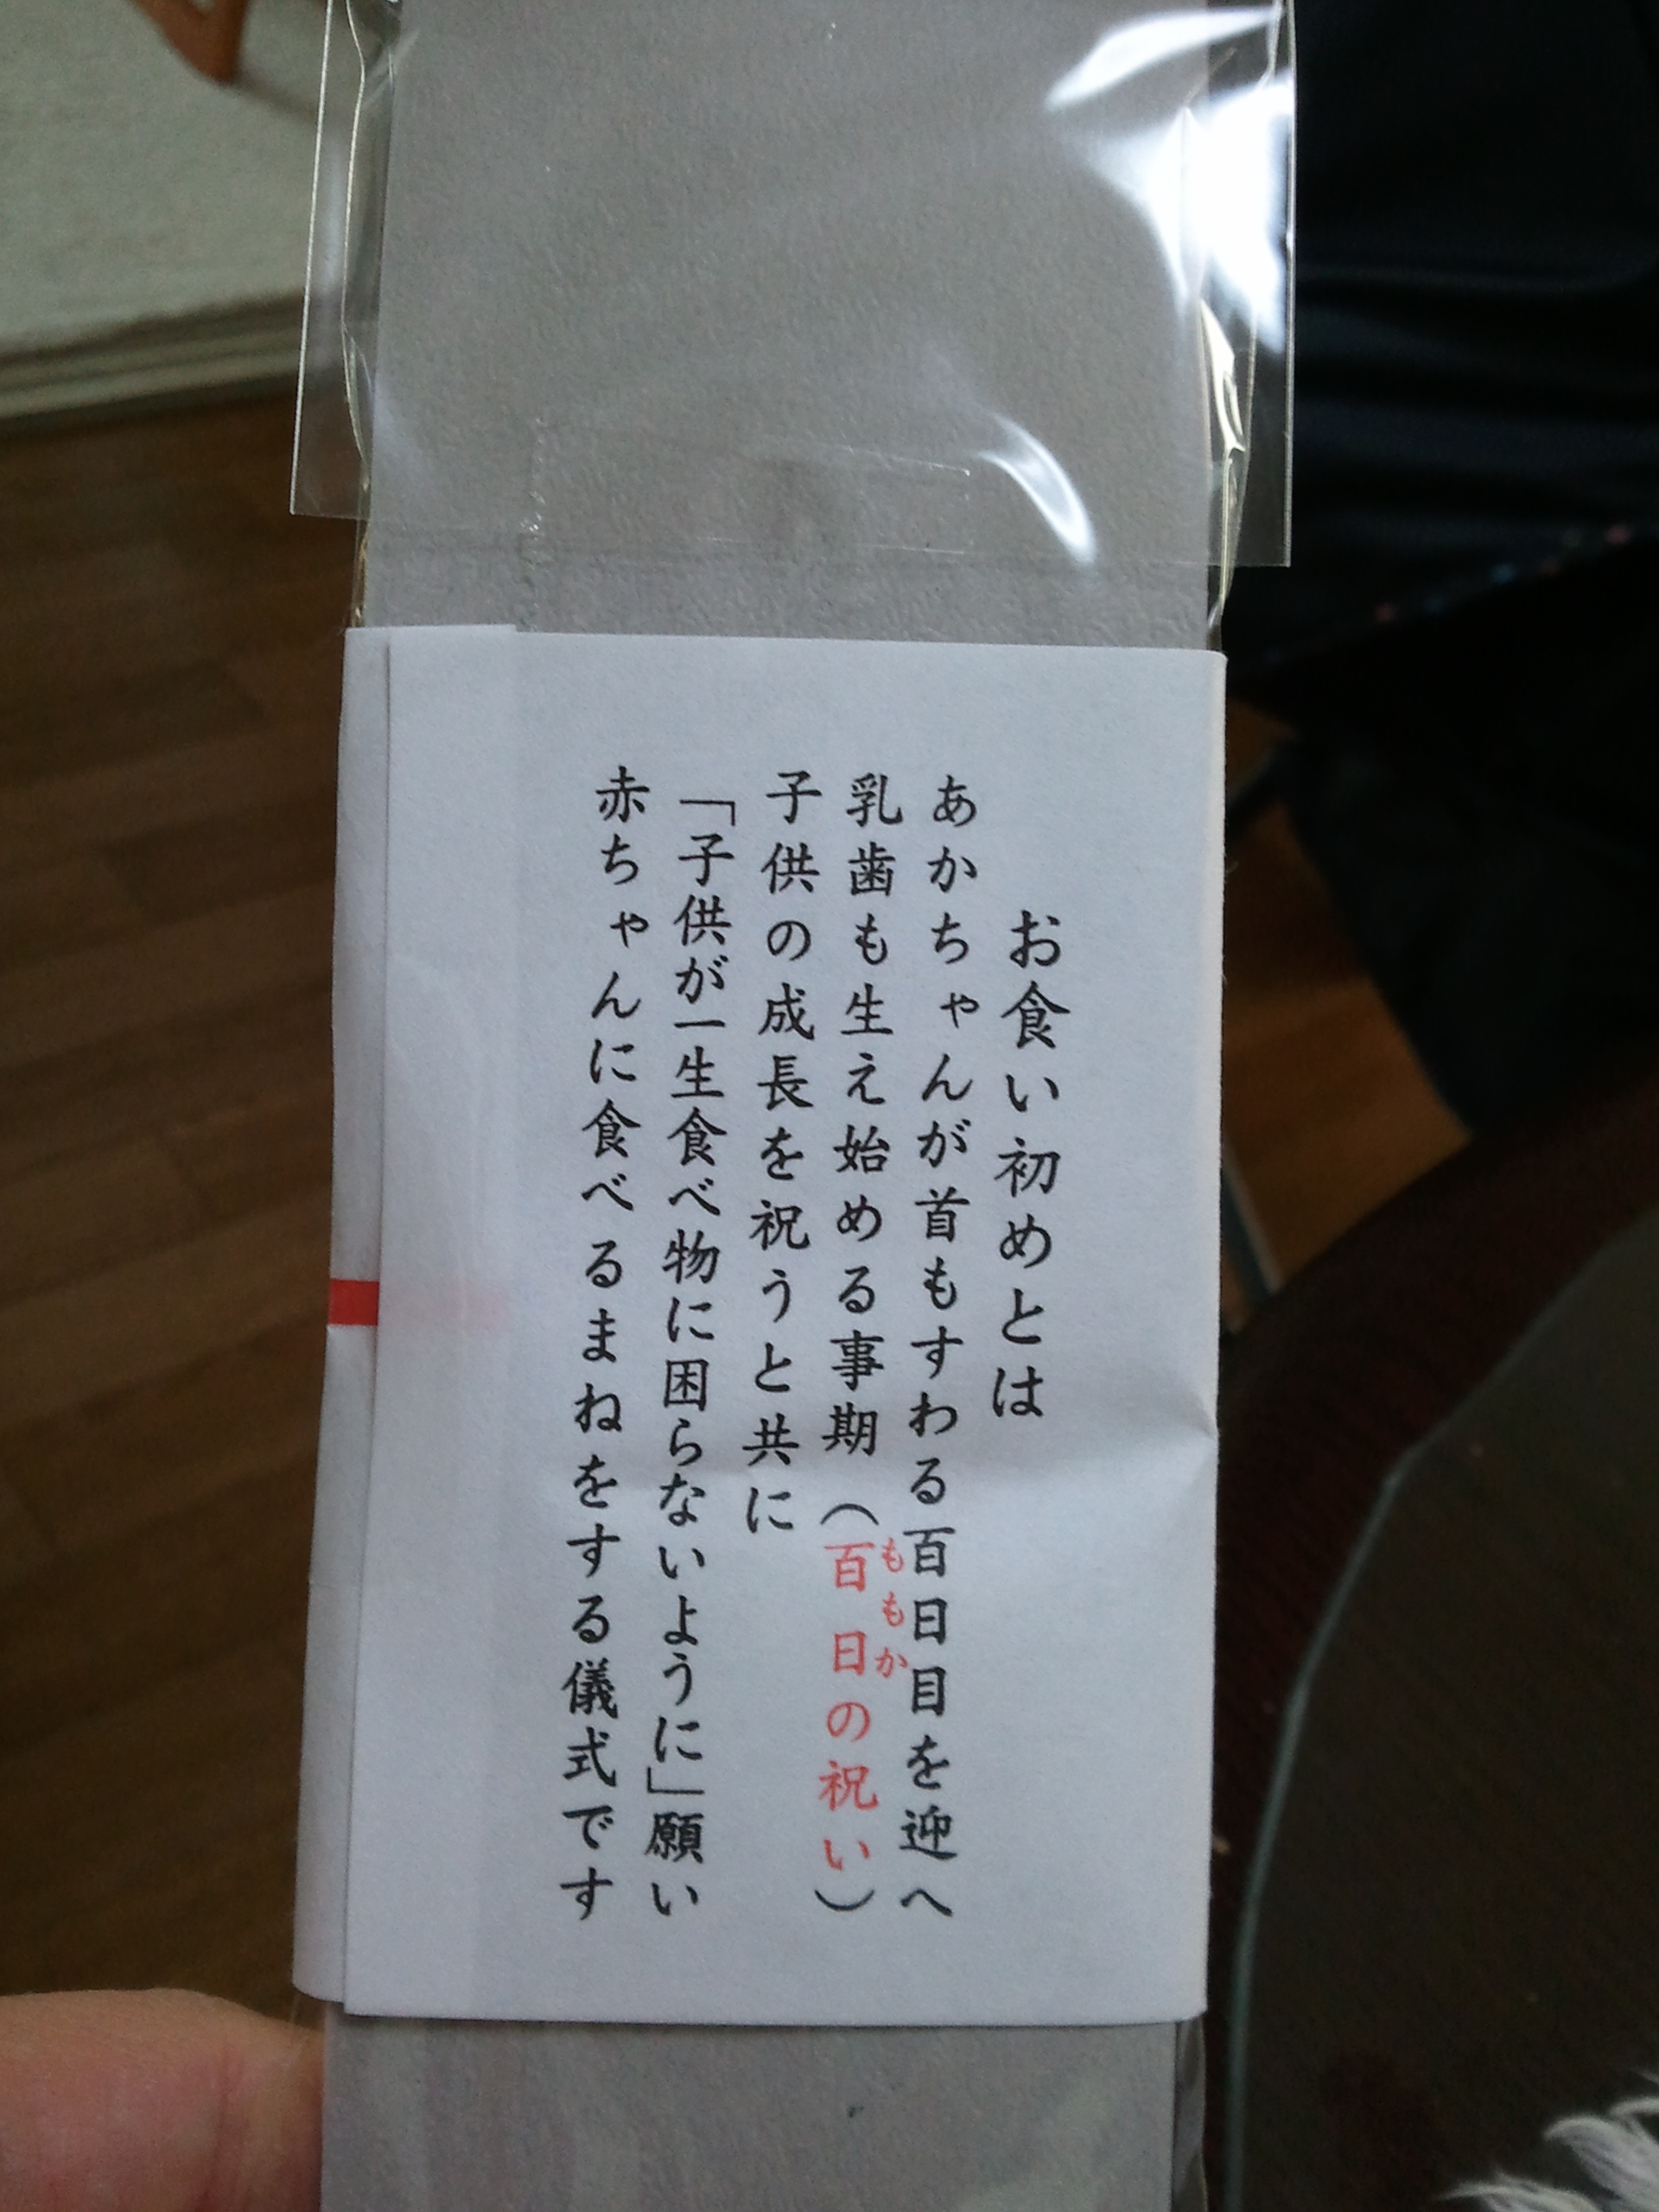 お食い初めとは
あかちゃんが首もすわる百日目を迎へ
乳歯も生え始める事期（百日の祝い）
ももか
子供の成長を祝うと共に
「子供が一生食べ物に困らないように」願い
赤ちゃんに食べるまねをする儀式です